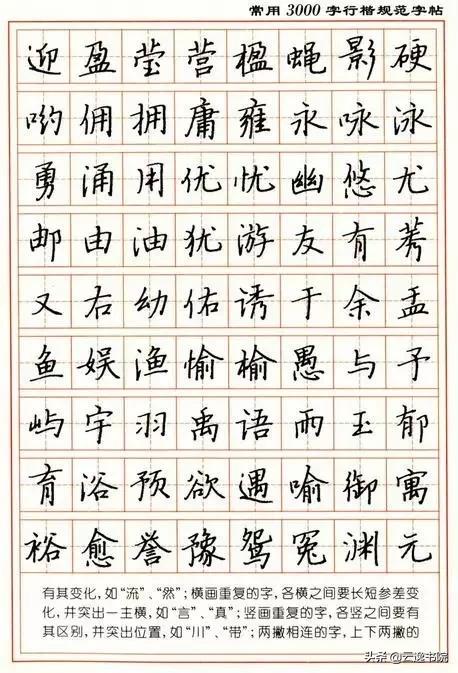 常用3000字行楷规范字帖
迎盈莹营楹蝇影硬
哟佣拥庸雍永咏泳
勇涌用优忧幽悠尤
邮由油犹游友有莠
又右幼佑诱于余盂
鱼娱渔愉榆愚与予
屿宇羽禹语雨玉郁
育浴预欲遇喻御寓
裕愈誉豫鸳冤渊元
有其变化，如“流”、“然”；横画重复的字，各横之间要长短参差变
化，并突出一主横，如“言”、“真”；竖画重复的字，各竖之间要有
其区别，并突出位置，如“川”、“带”；两撇相连的字，上下两撇的
头条@云逸书院